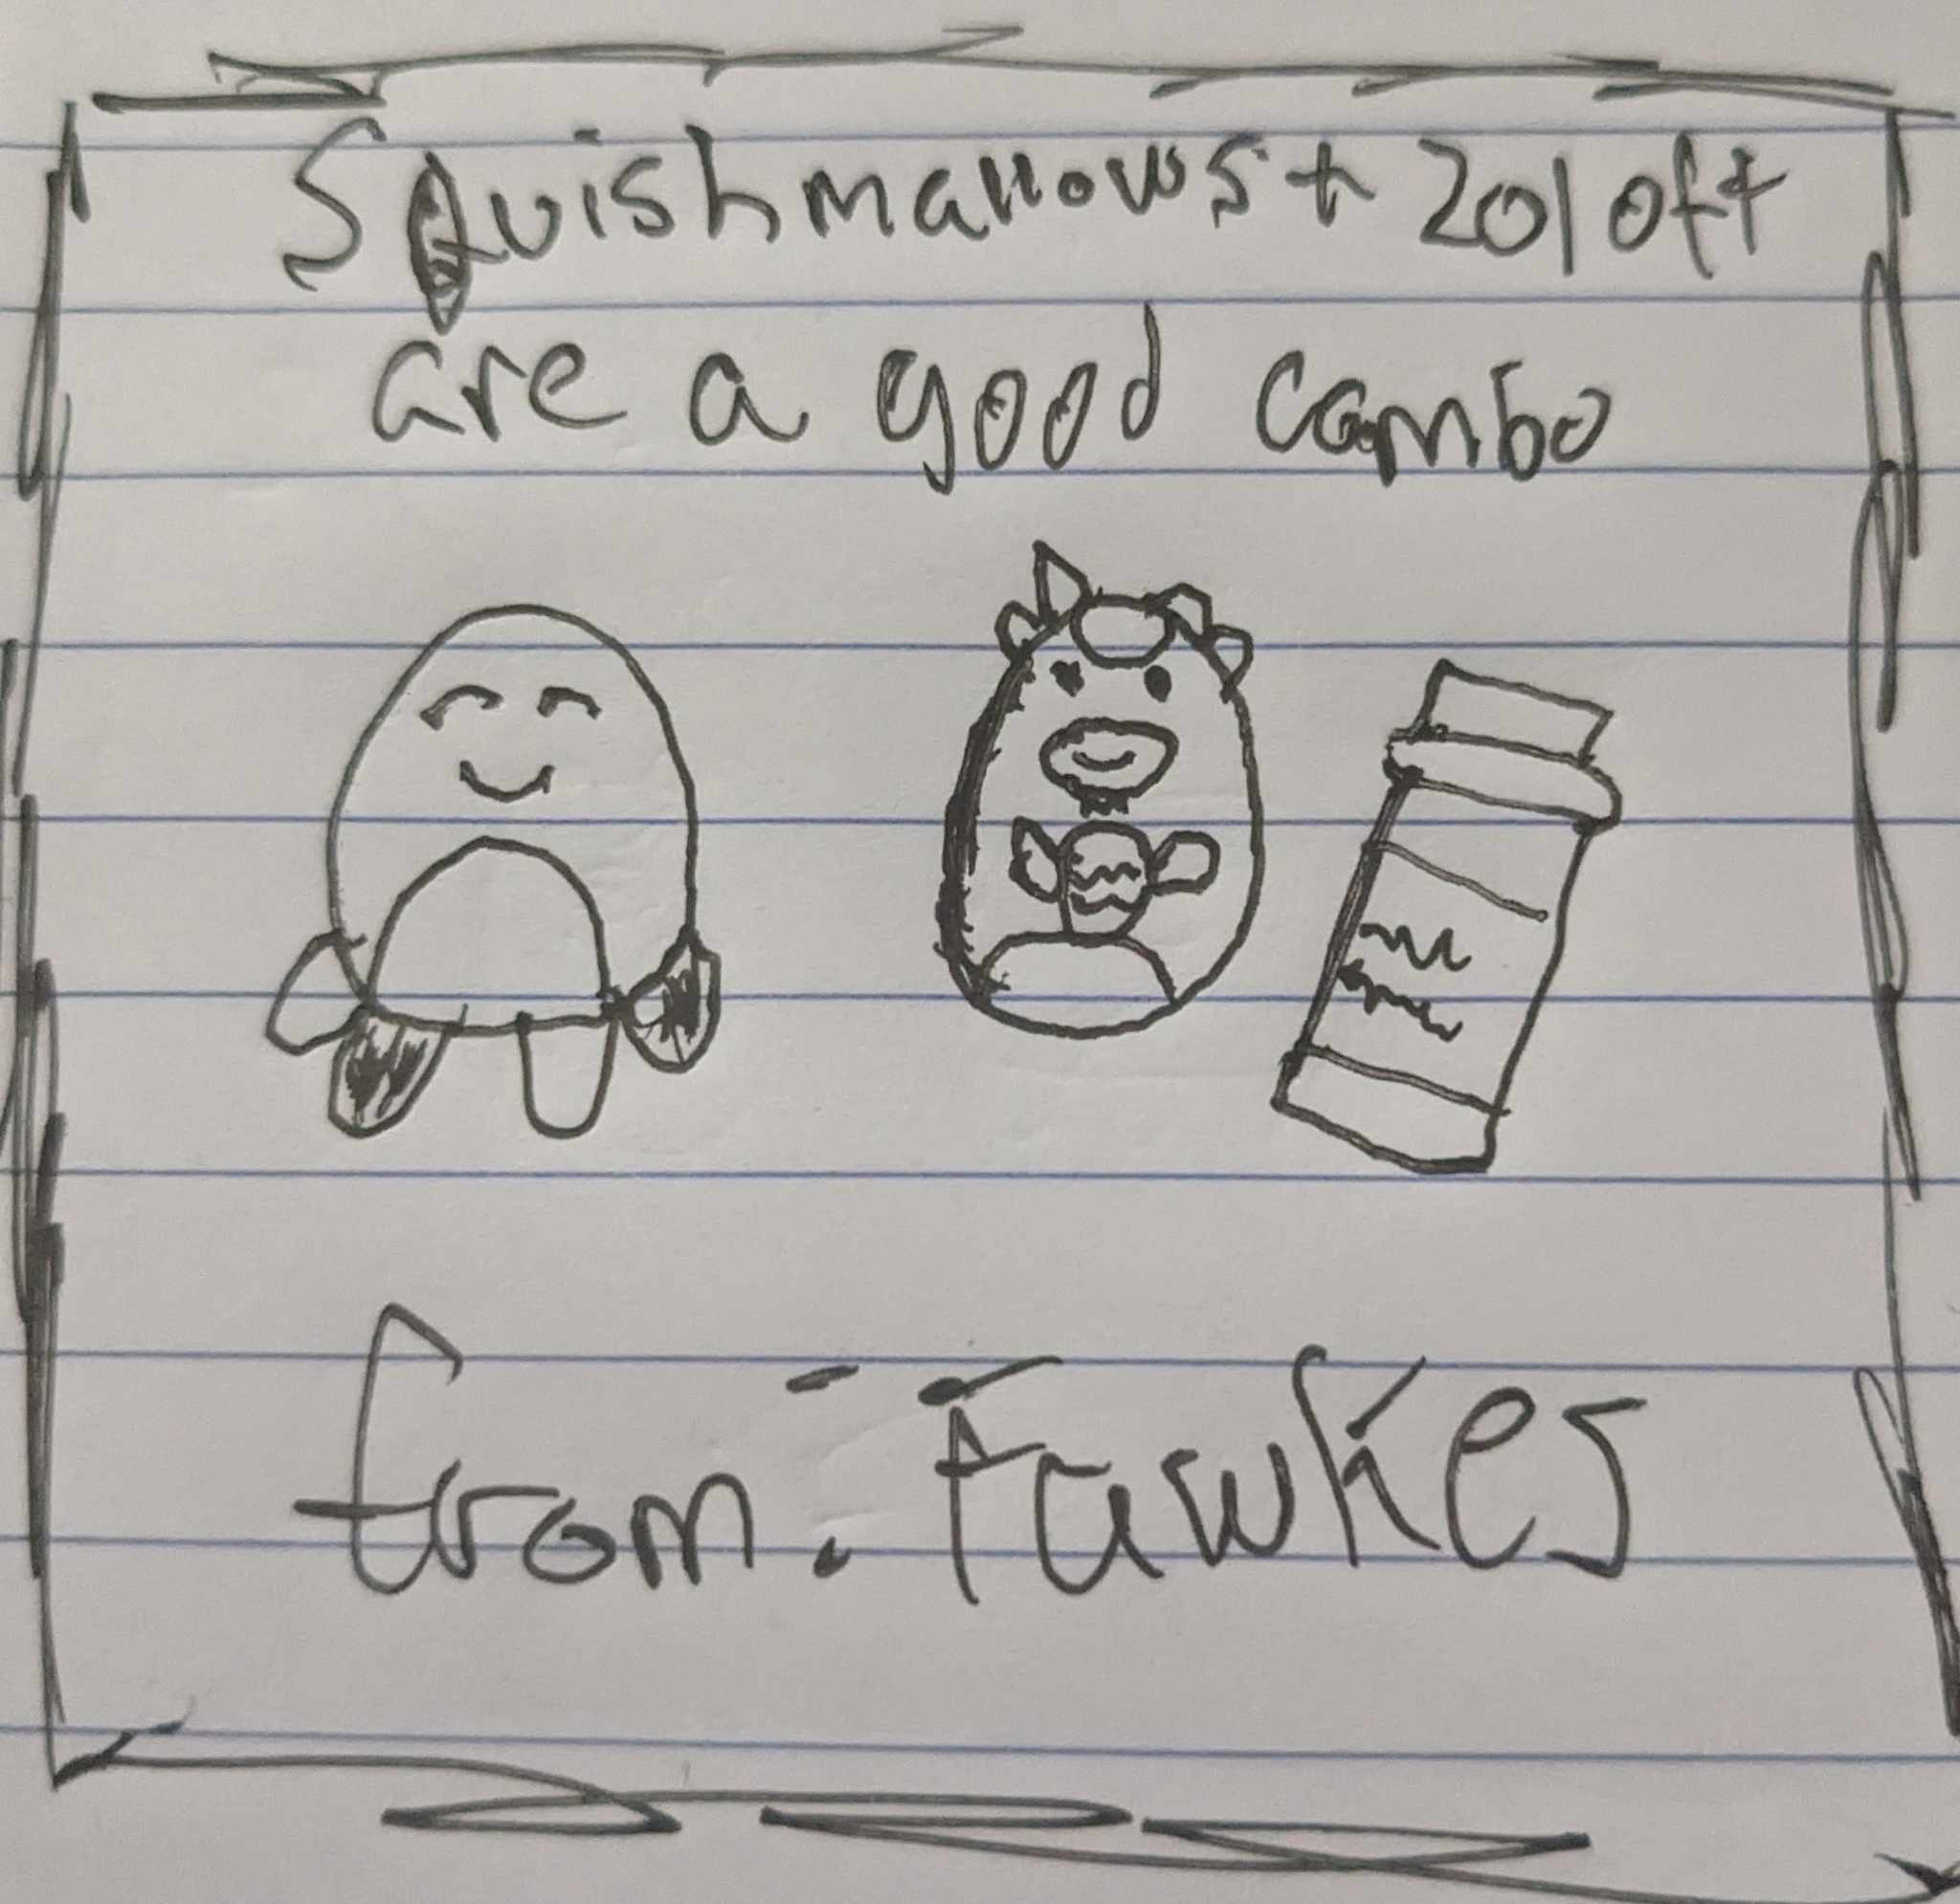 Squishmallows + Zoloft
are a good combo
from: Fawkes